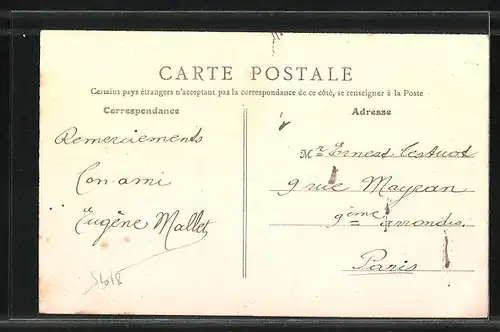 CARTE POSTALE
Certains pays étrangers n'acceptant pas la correspondance de ce côté, se renseigner à la Poste
Correspondance
Remerciements
Ton ami
Eugène Mallet
5418
Adresse
Mr Ernest Testuot
9 rue Mayran
9ème arrondis.
Paris